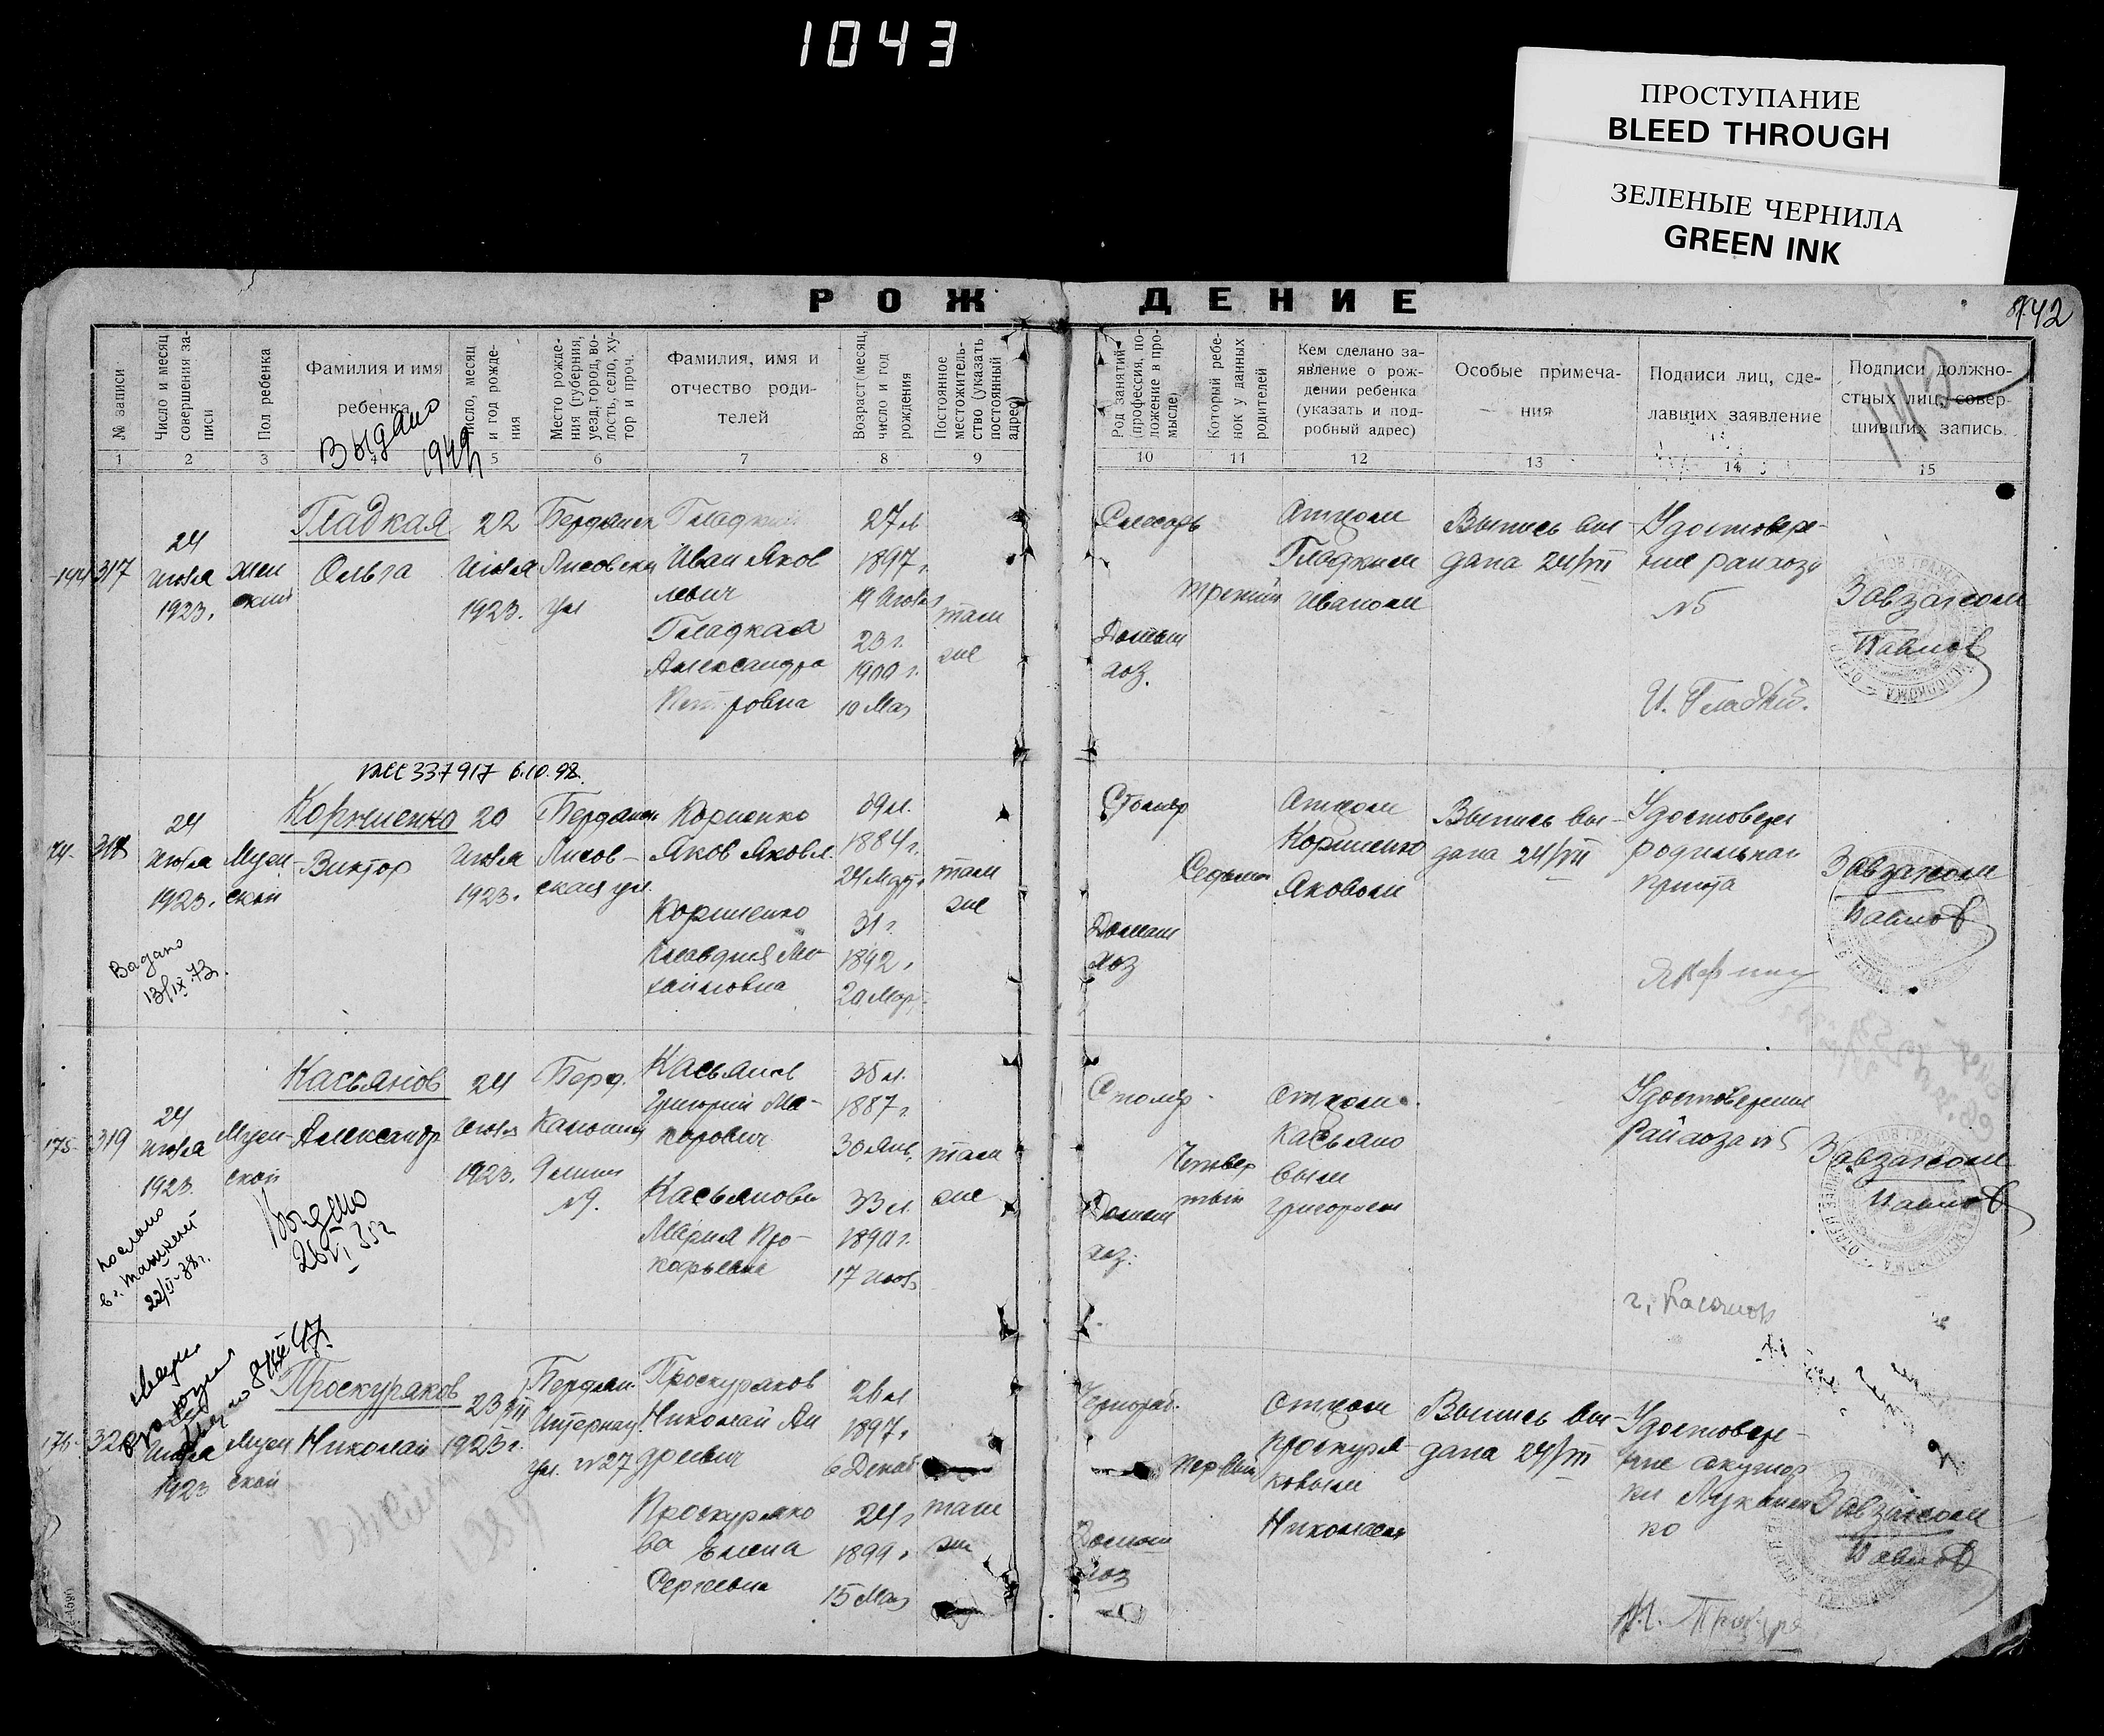 1043
ПРОСТУПАНИЕ
BLEED THROUGH
ЗЕЛЕНЫЕ ЧЕРНИЛА
GREEN INK
РОЖДЕНИЕ
742
№ записи
Число и месяц совершения записи
Пол ребенка
Фамилия и имя
ребенка
Число, месяц и год рождения
Место рождения (губерния, уезд, город, волость, село, хутор и проч.
Фамилия, имя и
отчество роди-
телей
Возраст (месяц, число и год рождения
Постоянное местожительство (указать постоянный адрес)
Род занятий (профессия, положение в промысле)
Который ребенок у данных родителей
Кем сделано за-
явление о рож-
дении ребенка
(указать и под-
робный адрес)
Особые примеча-
ния
Подписи лиц, сде-
лавших заявление
Подписи должно-
стных лиц, совер-
шивших запись.
1 2 3 4 5 6 7 8 9 10 11 12 13 14 15
Выдано
317
24
июля
1923.
жен
ский
Гладкая
Ольга
22
июля
1923.
Бердянск
ул
Гладкий
Иван Яков
левич
Гладкая
Александра
Петровна
27 л
1897 г.
19 июля
23 г.
1900 г.
10 Мая
там
же
Слесарь
Домаш
хоз.
третий
Отцом
Гладким
Иваном
Выпись вы-
дана 24/VII
Удостовере-
ние райхоза
№5
И. Гладкий.
Завзагсом
Павлов
337917 6.10.98.
318
24
июля
1923.
Муж
ской
Корниенко
Виктор
20
июля
1923.
Бердянск
Лисов-
ская ул.
Корненко
Яков Яковл.
Корниенко
Клавдия Ми-
хайловна
39 л.
1884 г.
24 Март
31 г.
1892.
20 Март
там
же
Столяр
Домаш
хоз
Седьмой
Отцом
Корниенко
Яковом
Выпись вы-
дана 24/VII
Удостовере
родильнаго
приюта
Завзагсом
Павлов
13/IX.73.
175-
319
24
июля
1923.
Муж-
ской
Касьянов
Александр
24
июля
1923.
Берд.
9 линия
№9.
Касьянов
Григорий Ма-
карович
Касьянова
Мария Про-
кофьевна
35 л.
1887 г
30 Янв.
33 л
1890 г.
17 июля
там
же
Столяр.
Домаш
хоз.
Четвер
тый
Отцом.
Касьяно
вым
Григорием
Удостоверение
Райхоза №5
г. Касянов
Завзагсом
Павлов
Выдано
26/VI 35 г
послано
в г. Ташкент
22/II-38 г.
176-
июля
1923
Муж
ской
Проскуряков
Николай
23/VII
1923 г.
Бердян.
Интернац.
ул. №27
Проскуряков
Николай Ан
дреевич
Проскуряко
ва Елена
Сергеевна
26 л
1897.
6 Декаб
24 г
1899.
15 Мая
там
же
Чернораб.
Домаш
хоз
первый
Отцом
Проскуря-
ковым
Николаем
Выпись вы-
дана 24/VII
Удостовере-
ние акушер
ки
Завзагсом
Павлов